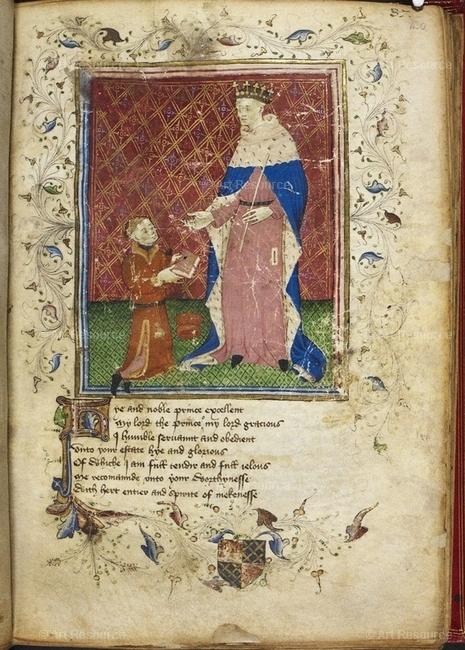 hye and noble prince excellent
My lord the prince my lord gracious
I humble servaunt and obedient
Unto your estate hye and glorious
Of Whiche I am full tendir and full ielous
Me recomaunde unto your Worthynesse
With hert entier and spirite of mekenesse
© Art Resource
Art Resource
© Art Resource